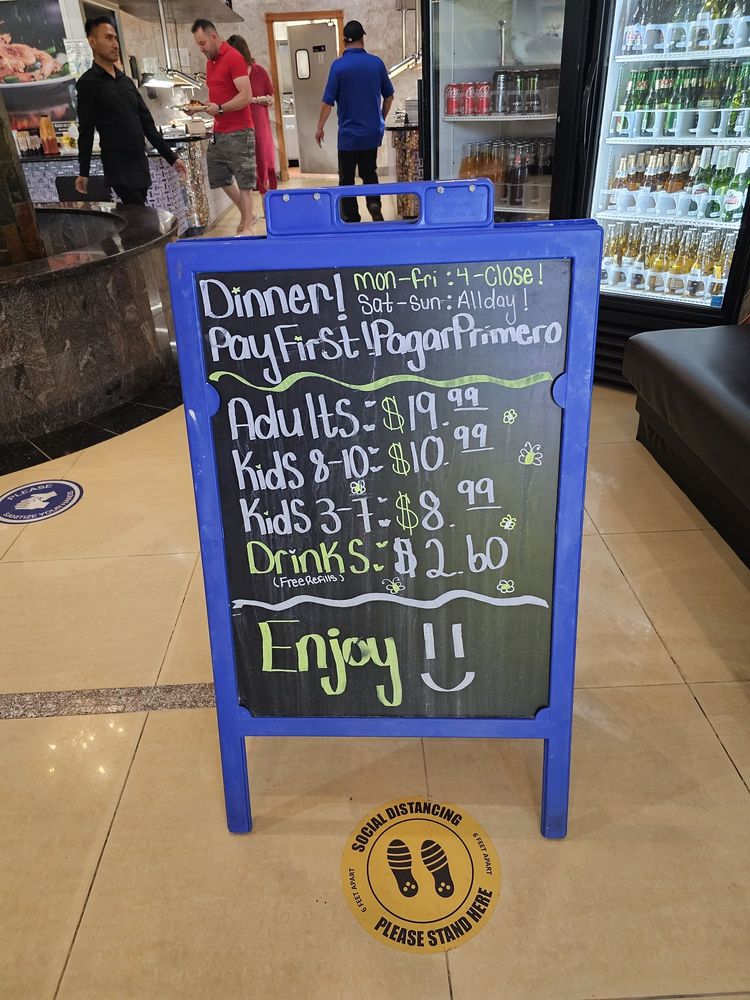 Dinner! Mon-Fri : 4-Close!
Sat-Sun: Allday!
Pay First! Pagar Primero
Adults: $19.99
Kids 8-10: $10.99
Kids 3-7: $8.99
Drinks: $2.60
(Free Refills)
Enjoy
PLEASE
SANITIZE YOUR HANDS
SOCIAL DISTANCING
6 FEET APART
6 FEET APART
PLEASE STAND HERE